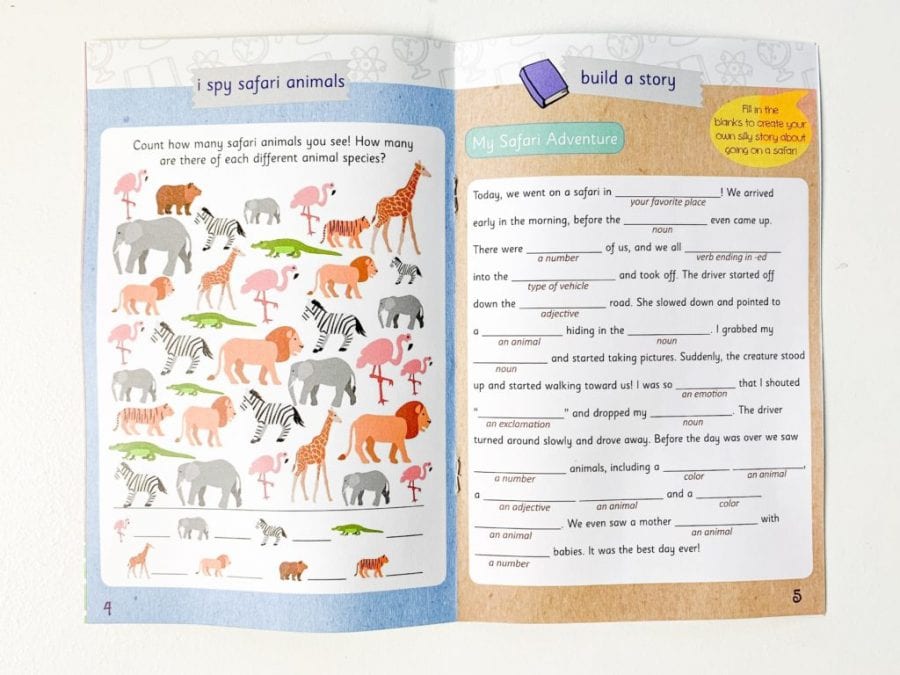 i spy safari animals
Count how many safari animals you see! How many
are there of each different animal species?
4
build a story
Fill in the
blanks to create your
own silly story about
going on a safari!
My Safari Adventure
Today, we went on a safari in ____________! We arrived
your favorite place
early in the morning, before the ____________ even came up.
noun
There were ____________ of us, and we all ____________
a number verb ending in -ed
into the ____________ and took off. The driver started off
type of vehicle
down the ____________ road. She slowed down and pointed to
adjective
a ____________ hiding in the ____________. I grabbed my
an animal noun
____________ and started taking pictures. Suddenly, the creature stood
noun
up and started walking toward us! I was so ____________ that I shouted
an emotion
"____________" and dropped my ____________. The driver
an exclamation noun
turned around slowly and drove away. Before the day was over we saw
____________ animals, including a ____________ ____________,
a number color an animal
a ____________ ____________ and a ____________
an adjective an animal color
____________. We even saw a mother ____________ with
an animal an animal
____________ babies. It was the best day ever!
a number
5